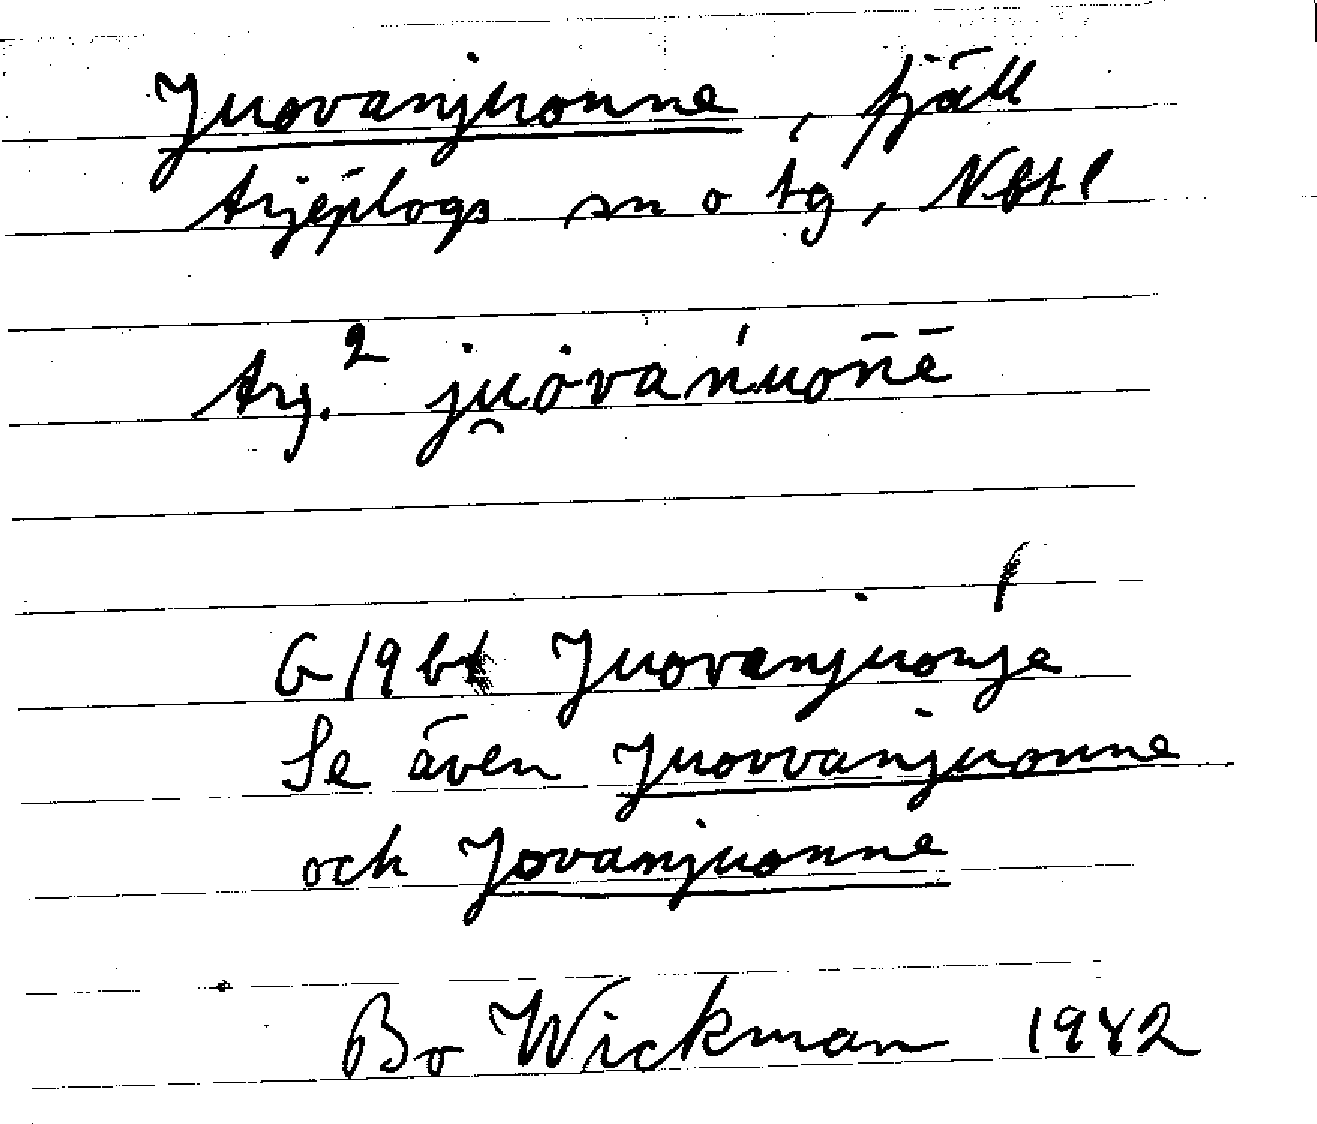 Juovanjuonne, fjäll
Arjeplogs sn o tg, Nbtl
Arj.² ju̯ȯvańuōn̄ē
G 19 b Juovanjuonje
Se även Juovvanjuonne
och Jovanjuonne
Bo Wickman 1942